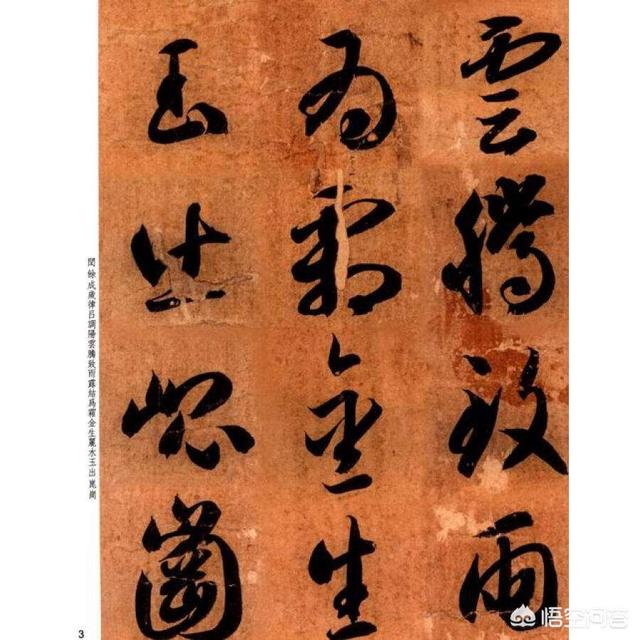 雲騰致雨
為霜金生
玉出崐崗
閏餘成歲律呂調陽雲騰致雨露結爲霜金生麗水玉出崑崗
3
悟空问答